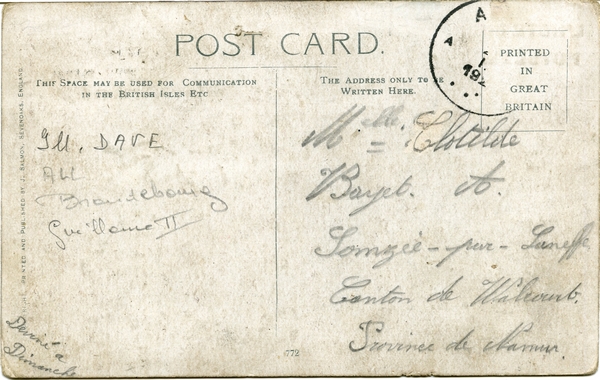 POST CARD.
THIS SPACE MAY BE USED FOR COMMUNICATION
IN THE BRITISH ISLES ETC
THE ADDRESS ONLY TO BE
WRITTEN HERE.
PRINTED
IN
GREAT
BRITAIN
A
A
1
192
DAVE
Brandebourg
Guillaume II
Melle Clotilde
Bayet. A.
Somzée - par - Laneffe
Canton de Walcourt.
Province de Namur
à
Dimanche
PRINTED AND PUBLISHED BY J. SALMON, SEVENOAKS, ENGLAND
772